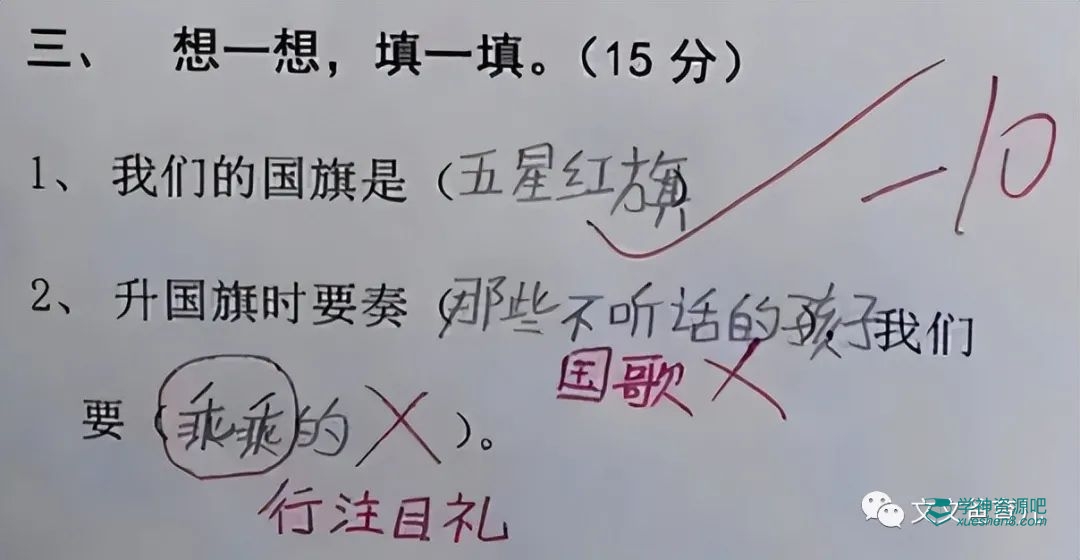 三、 想一想，填一填。（15 分）
-10
1、 我们的国旗是（五星红旗）
2、 升国旗时要奏（那些不听话的孩子，我们
国歌
要（乖乖的 ）。
行注目礼
学神资源吧
xueshen8.com